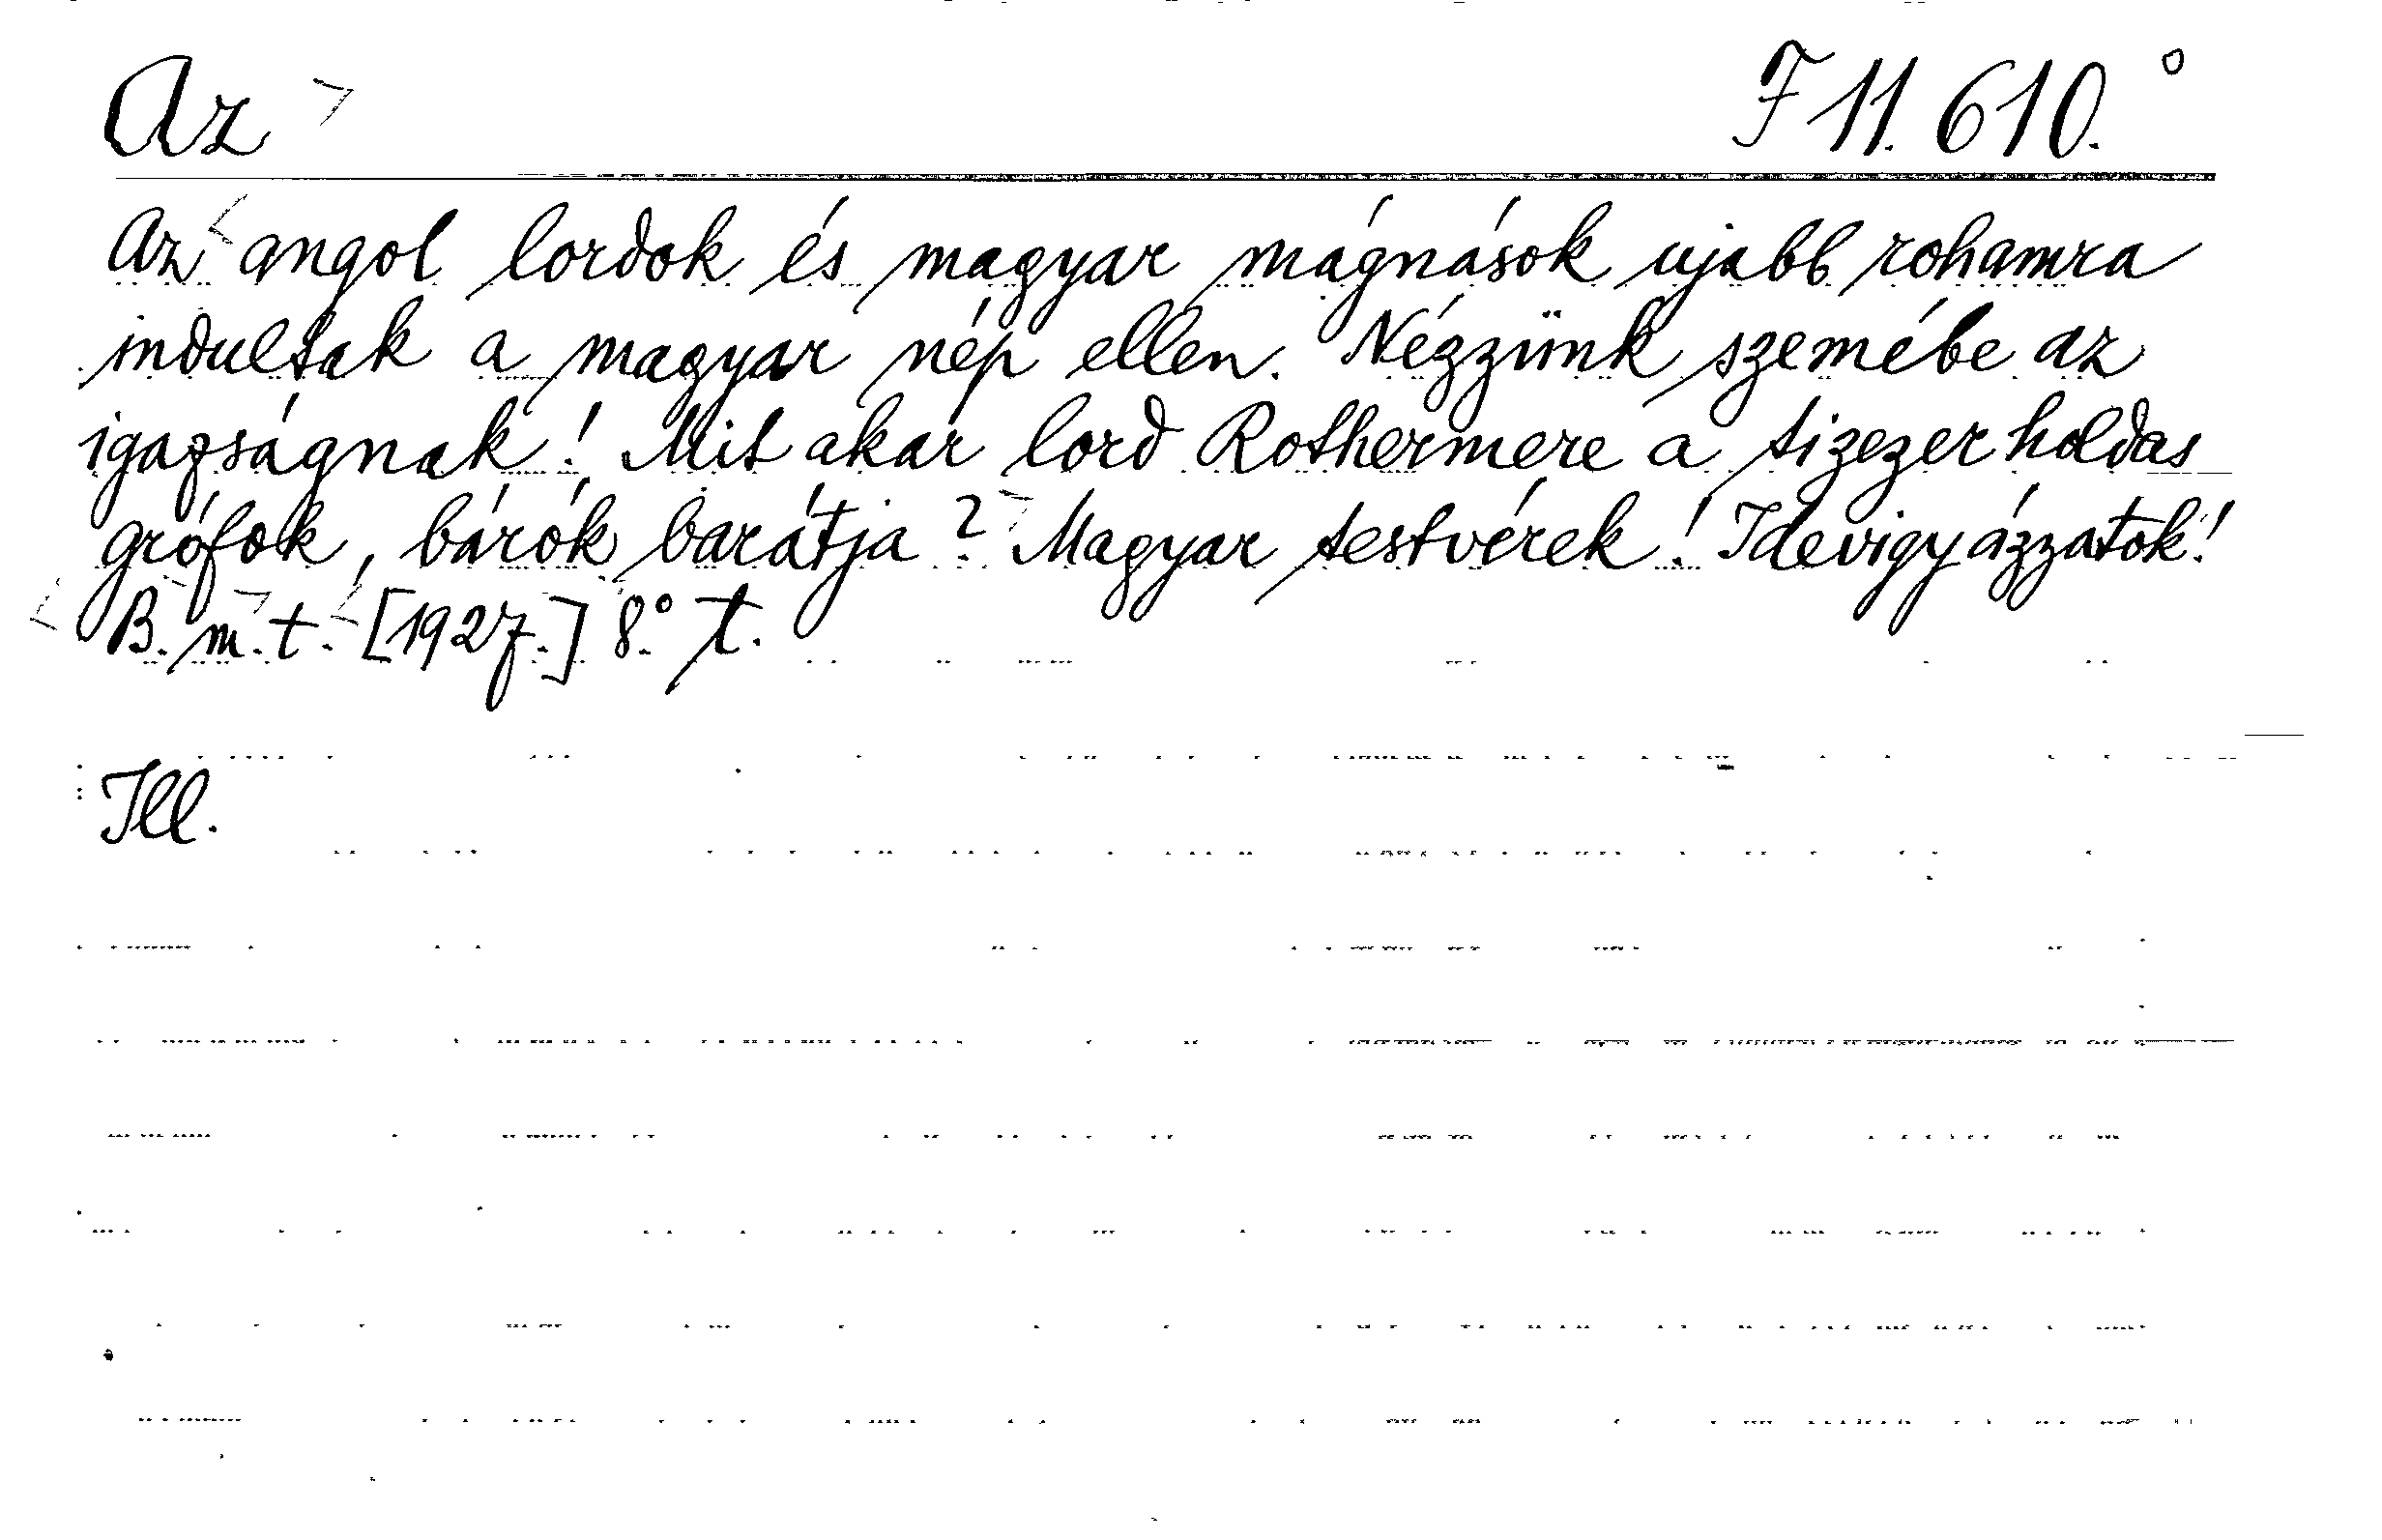 Az
F 11. 610.°
Az angol lordok és magyar mágnások ujabb rohamra
indultak a magyar nép ellen. Nézzünk szemébe az
igazságnak! Mit akar lord Rothermere a tizezer holdas
grófok, bárók barátja? Magyar testvérek! Idevigyázzatok!
B. m. t. [1927.] 8.° t.
Ill.